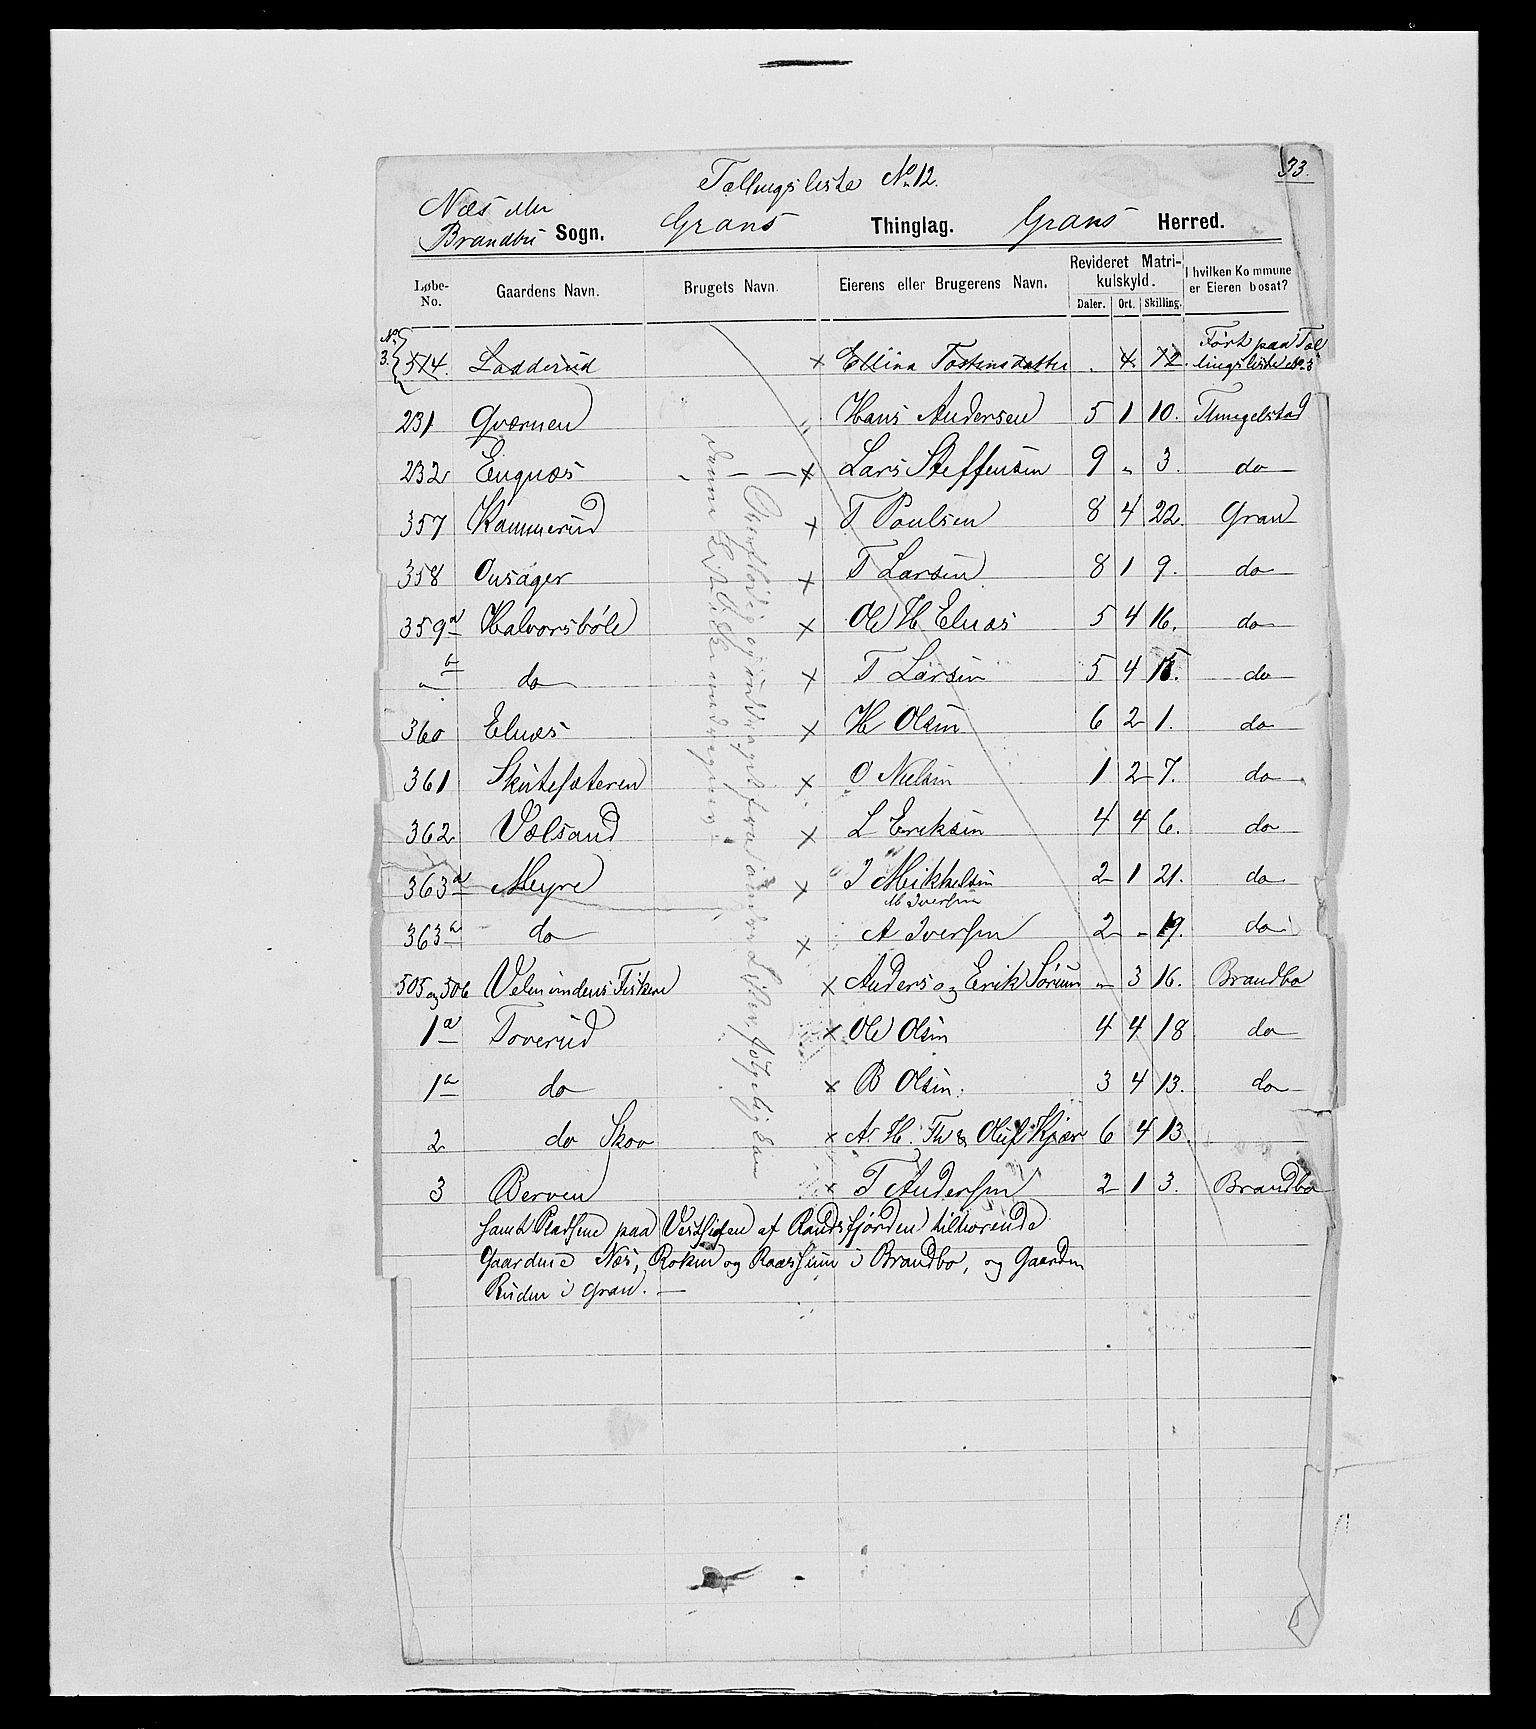 33.
Tællingsliste No 12.
Næs eller
Brandbu Sogn. Grans Thinglag. Grans Herred.
Løbe-No. Gaardens Navn. Brugets Navn. Eierens eller Brugerens Navn. Revideret Matrikulskyld. Daler. Ort. Skilling. I hvilken Kommune er Eieren bosat?
No 3. 514. Ladderud × Ellina Tostensdatter . 4 12. Ført paa Tællingsliste No 3
231 Qværnen " Hans Andersen 5 1 10. Thingelstad
232 Engnæs — — × Lars Steffensen 9 " 3. do
357 Kammerud × T Poulsen 8 4 22. Gran
358 Onsager × T Larsen 8 1 9. do
359a Halvorsbøle × Ole H Elnæs 5 4 16. do
" b do × T Larsen 5 4 15. do
360 Elnæs × H Olsen 6 2 1. do
361 Skutesæteren × O Nielsen 1 2 7. do
362 Vælsand × L Eriksen 4 4 6. do
363a Meyre × I Mikkelsen 2 1 21. do
M Iversen
363a do × A Iversen 2 - 19. do
505 og 506 Velmundens Fiskeri × Anders og Erik Sørum " 3 16. Brandbo
1a Toverud × Ole Olsen 4 4 18 do
1a do × B Olsen. 3 4 13. do
2 do Skov × A. H. Th & Oluf Kjær 6 4 13
3 Berven × T Andersen 2 1 3. Brandbo
samt Pladsene paa Vestsiden af Randsfjorden tilhørende
Gaardene Næs, Roken og Raassum i Brandbo, og Gaarden
Ruden i Gran. —
Overflødig og inddraget fra anden Liste, følgelig kan
denne Liste ikke